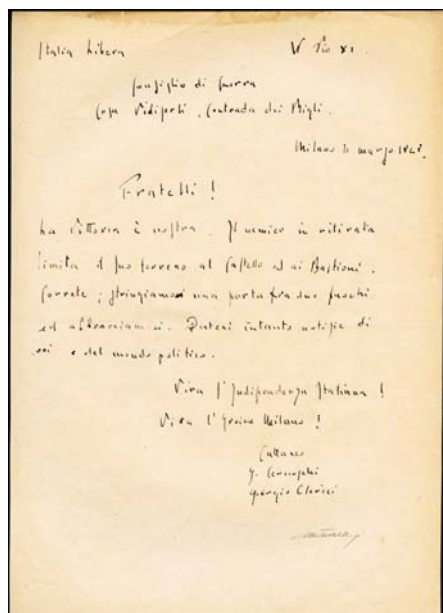 Italia Libera W Pio XI.
Consiglio di Guerra
Casa Vidiserti, Contrada dei Bigli.
Milano marzo
Fratelli !
La Vittoria è nostra. Il nemico in ritirata
limita il suo terreno al Castello ed ai Bastioni.
Correte ; stringiamoci una porta fra due fuochi
ed abbracciamoci. Dateci intanto notizie di
voi e del mondo politico.
Viva l'Indipendenza Italiana !
Viva l'Eroica Milano !
Cattaneo
G. Cernuschi
Giorgio Clerici